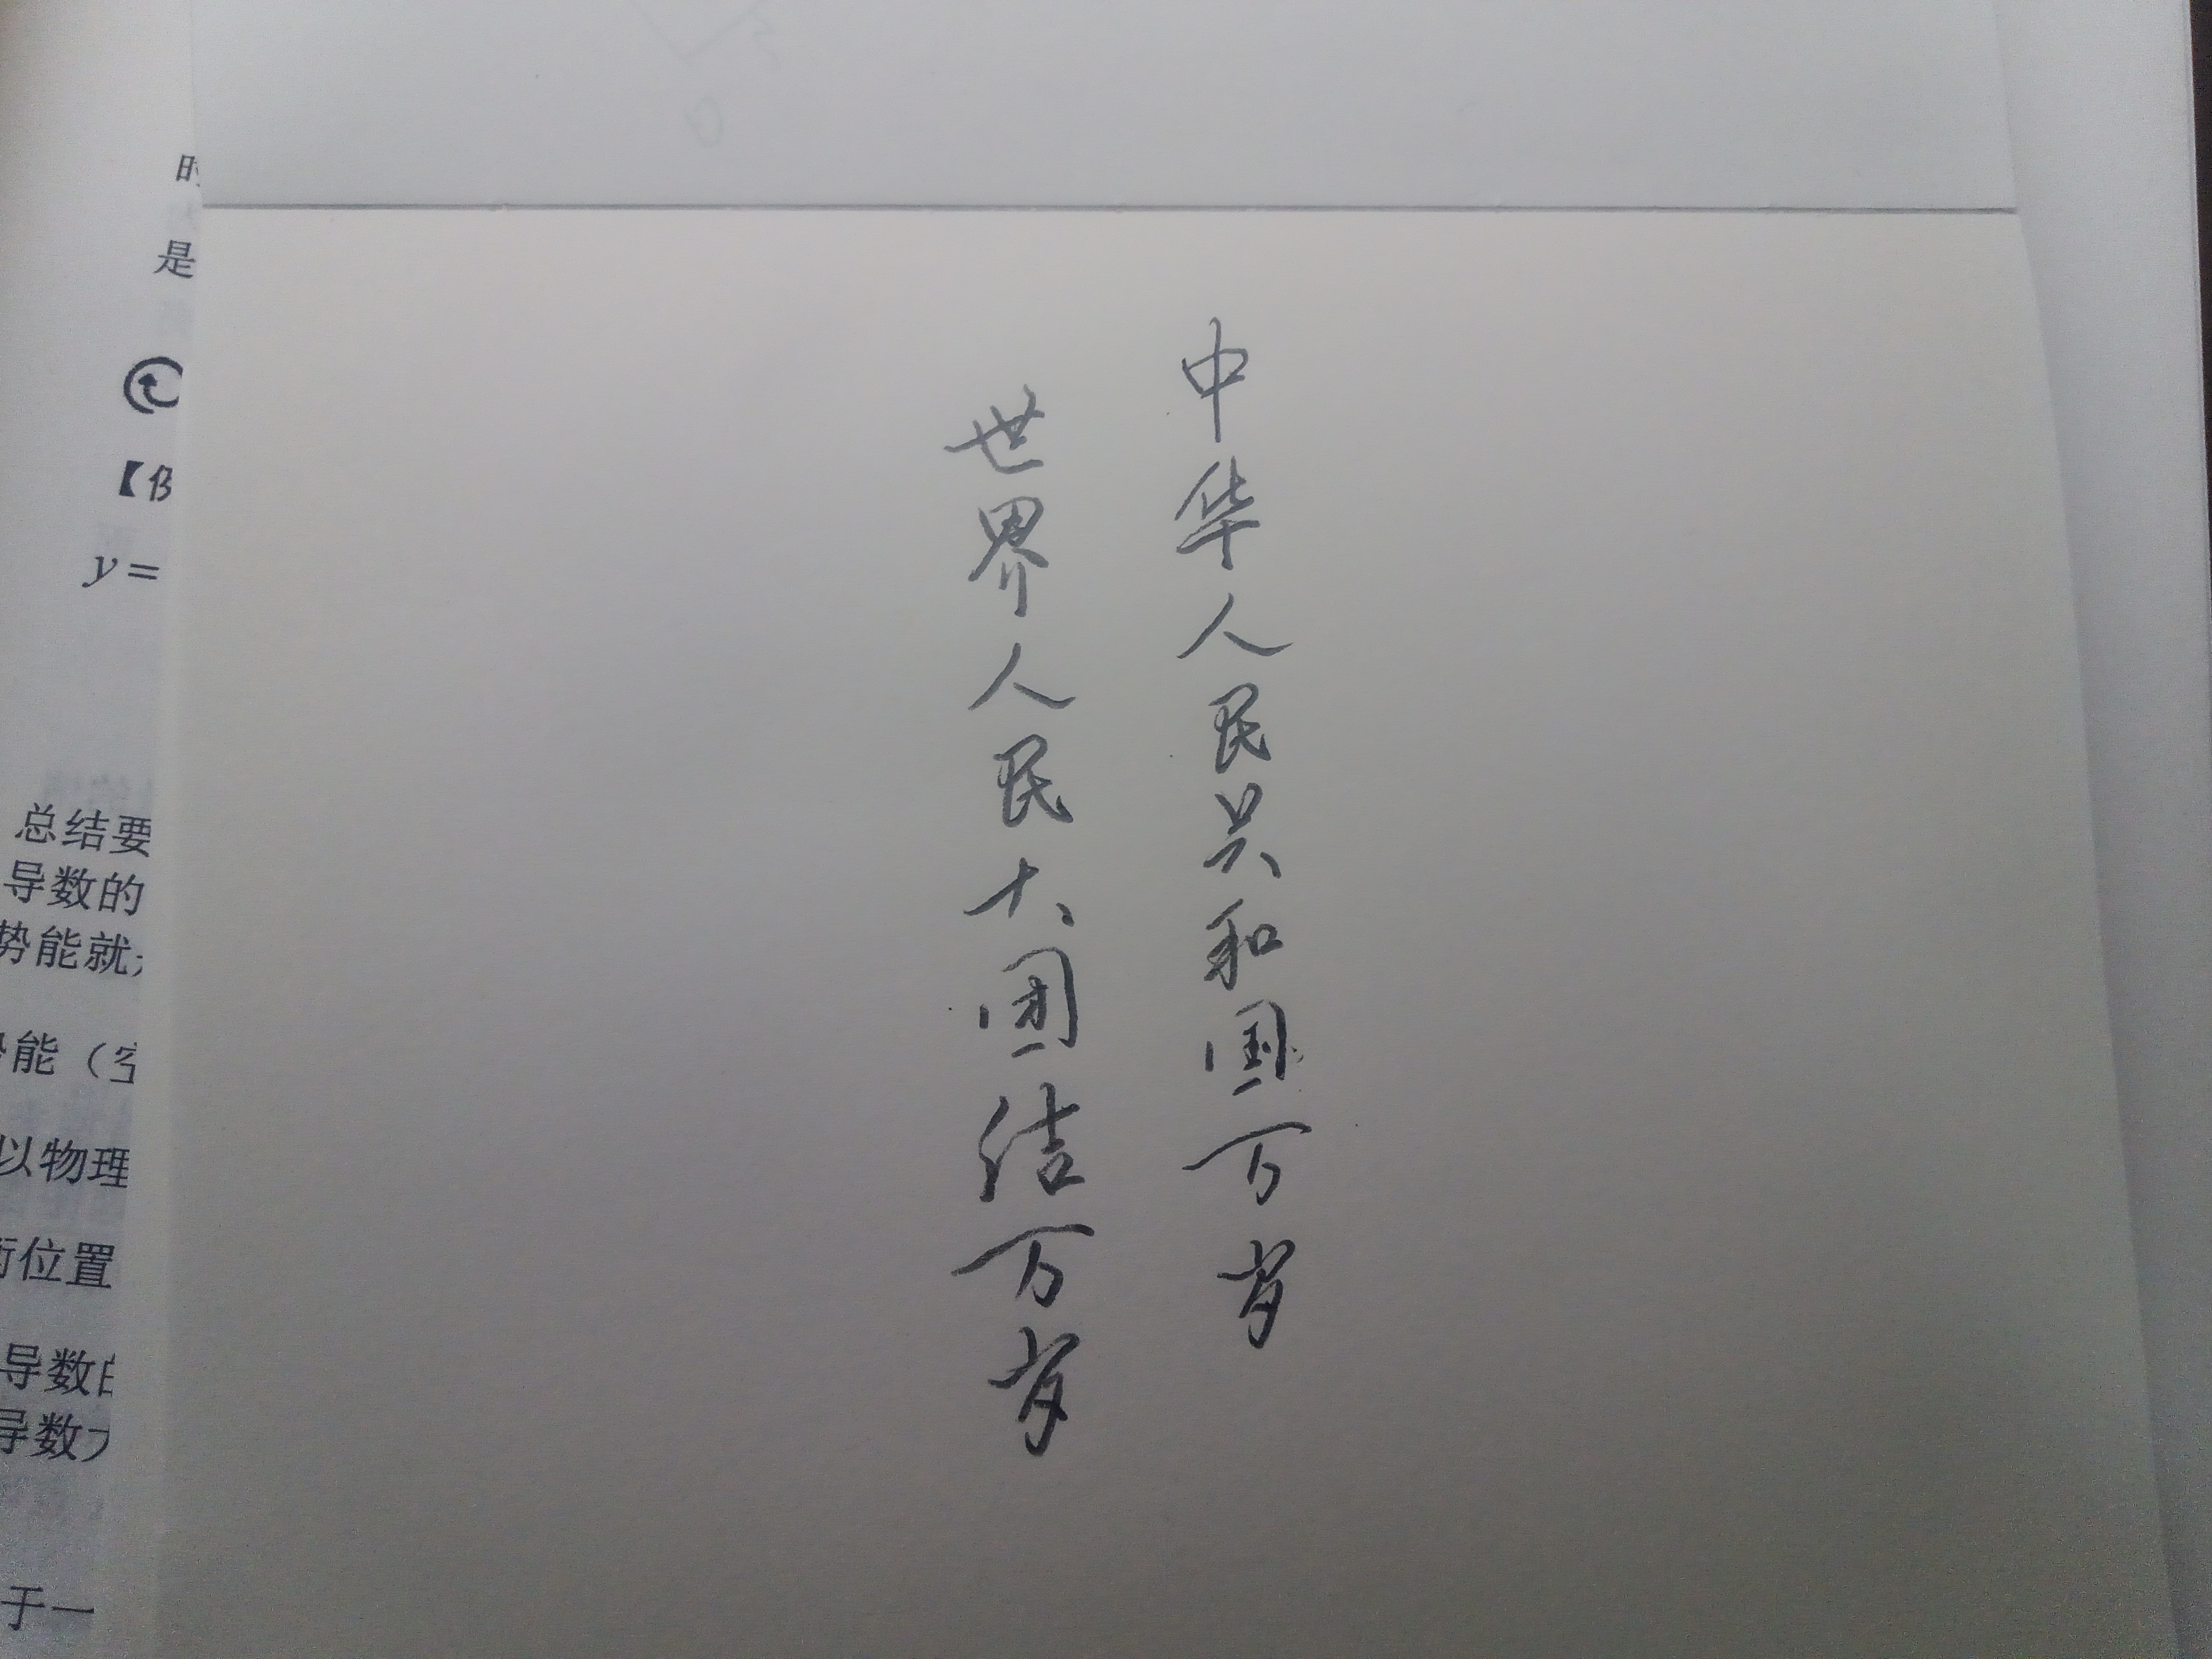 中华人民共和国万岁
世界人民大团结万岁
时
是
【
y=
总结要
导数的
势能就
能（空
以物理
位置
导数
导数
于一